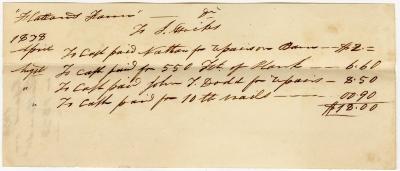 "Flatlands Farm" Dr
To S. Hicks
1878
April To Cash paid Nathan for repairs on Barn — $2=
To Cash paid for 550 feet of Plank — 6.60
" To Cash paid John T. Dodd for repairs - 8.50
" To Cash paid for 10 lb nails — 00.90
$18.00